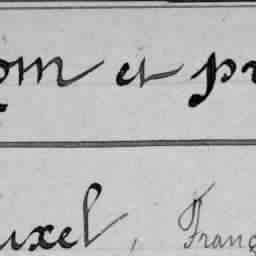 om et pr
uxel, Franç